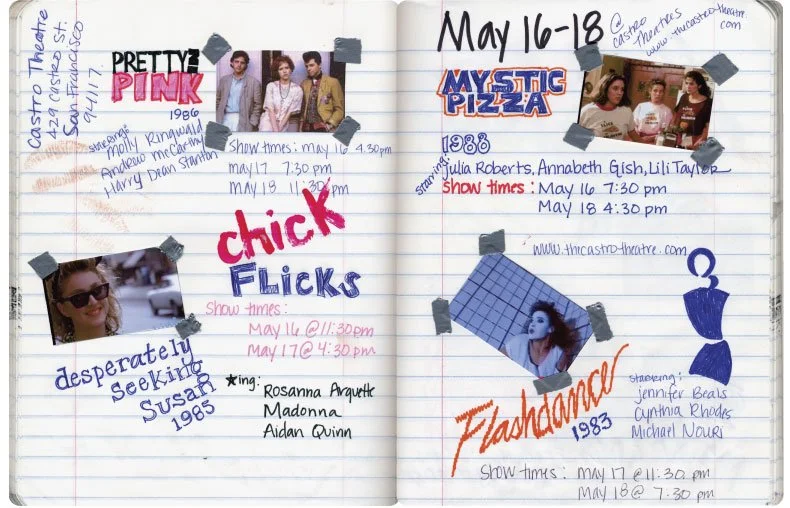 Castro Theatre
429 Castro St.
San Francisco
94117
PRETTY IN
PINK
1986
starring:
Molly Ringwald
Andrew McCarthy
Harry Dean Stanton
Show times: may 16 4.30pm
may 17 7:30 pm
may 18 11:30 pm
chick
FLicks
Show times:
May 16 @ 11:30pm
May 17 @ 4:30pm
desperately
Seeking
Susan
1985
★ing:
Rosanna Arquette
Madonna
Aidan Quinn
May 16-18 @
castro
Theatres
www.thecastrotheatre.
com
MYSTIC
PIZZA
1988
starring:
Julia Roberts, Annabeth Gish, Lili Taylor
Show times: May 16 7:30 pm
May 18 4:30 pm
www.thecastrotheatre.com
Flashdance
1983
starring:
Jennifer Beals
Cynthia Rhodes
Michael Nouri
Show times: may 17 @ 11:30 pm
May 18 @ 7:30 pm